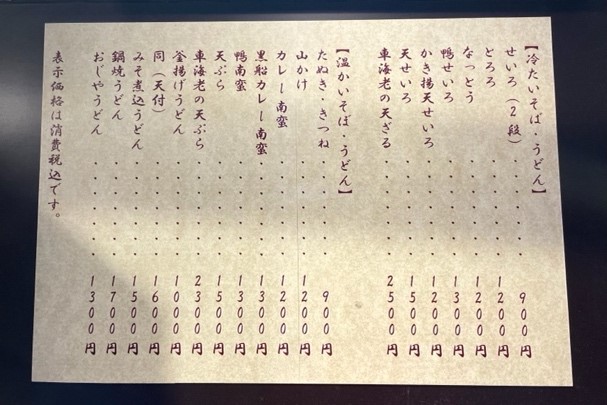 【冷たいそば・うどん】
せいろ（2段）・・・・・900円
とろろ・・・・・1200円
なっとう・・・・・1200円
鴨せいろ・・・・・1300円
かき揚天せいろ・・・・・1200円
天せいろ・・・・・1500円
車海老の天ざる・・・・・2500円
【温かいそば・うどん】
たぬき・きつね・・・・・900円
山かけ・・・・・1200円
カレー南蛮・・・・・1200円
黒船カレー南蛮・・・・・1300円
鴨南蛮・・・・・1300円
天ぷら・・・・・1500円
車海老の天ぷら・・・・・2300円
釜揚げうどん・・・・・1000円
同（天付）・・・・・1600円
みそ煮込うどん・・・・・1500円
鍋焼うどん・・・・・1700円
おじやうどん・・・・・1300円
表示価格は消費税込です。